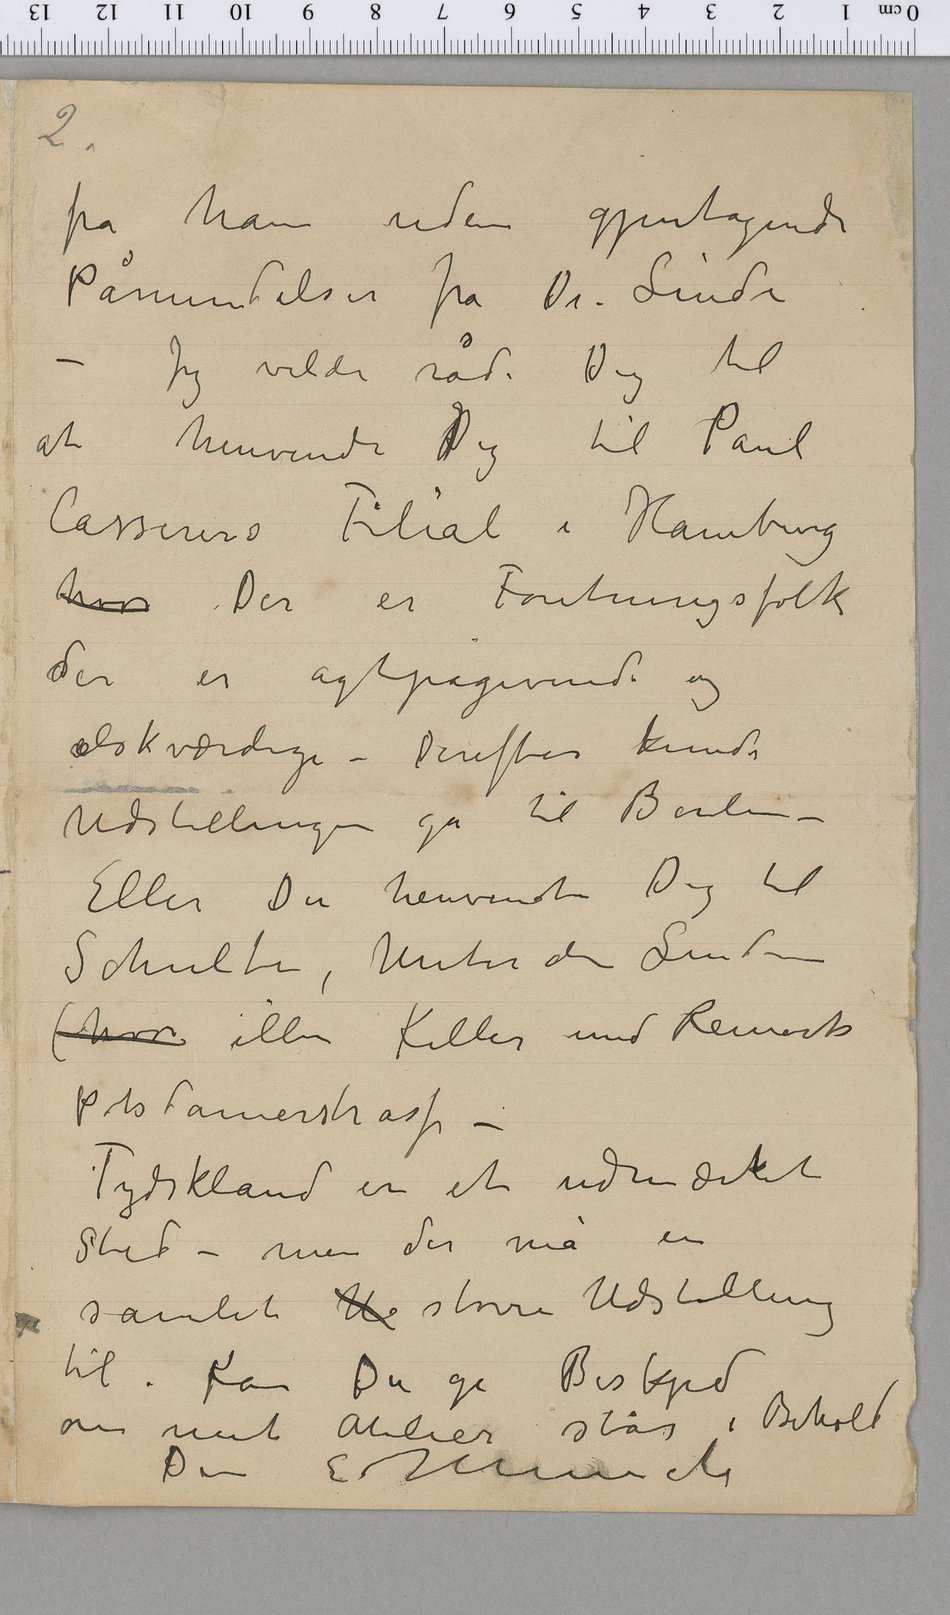 2.
fra ham uden gjentagende
Påmindelser fra Dr. Linde
– Jeg vilde råde Dig til
at henvende Dig til Paul
Cassirers Filial i Hamburg
hvor Der er Forretningsfolk
der er agtpågivende og
elskværdige – Derefter kunde
Udstillingen gå til Berlin –
Eller Du henvendte Dig til
Schulte, Unter den Linden
(hvor eller Keller und Reiner
Potsdamerstrasse –
Tydskland er et udmærket
Sted – men der må en
samlet større Udstilling
til. Kan Du gi Beskjed
om mit Atelier står i Behold
Din E Munch